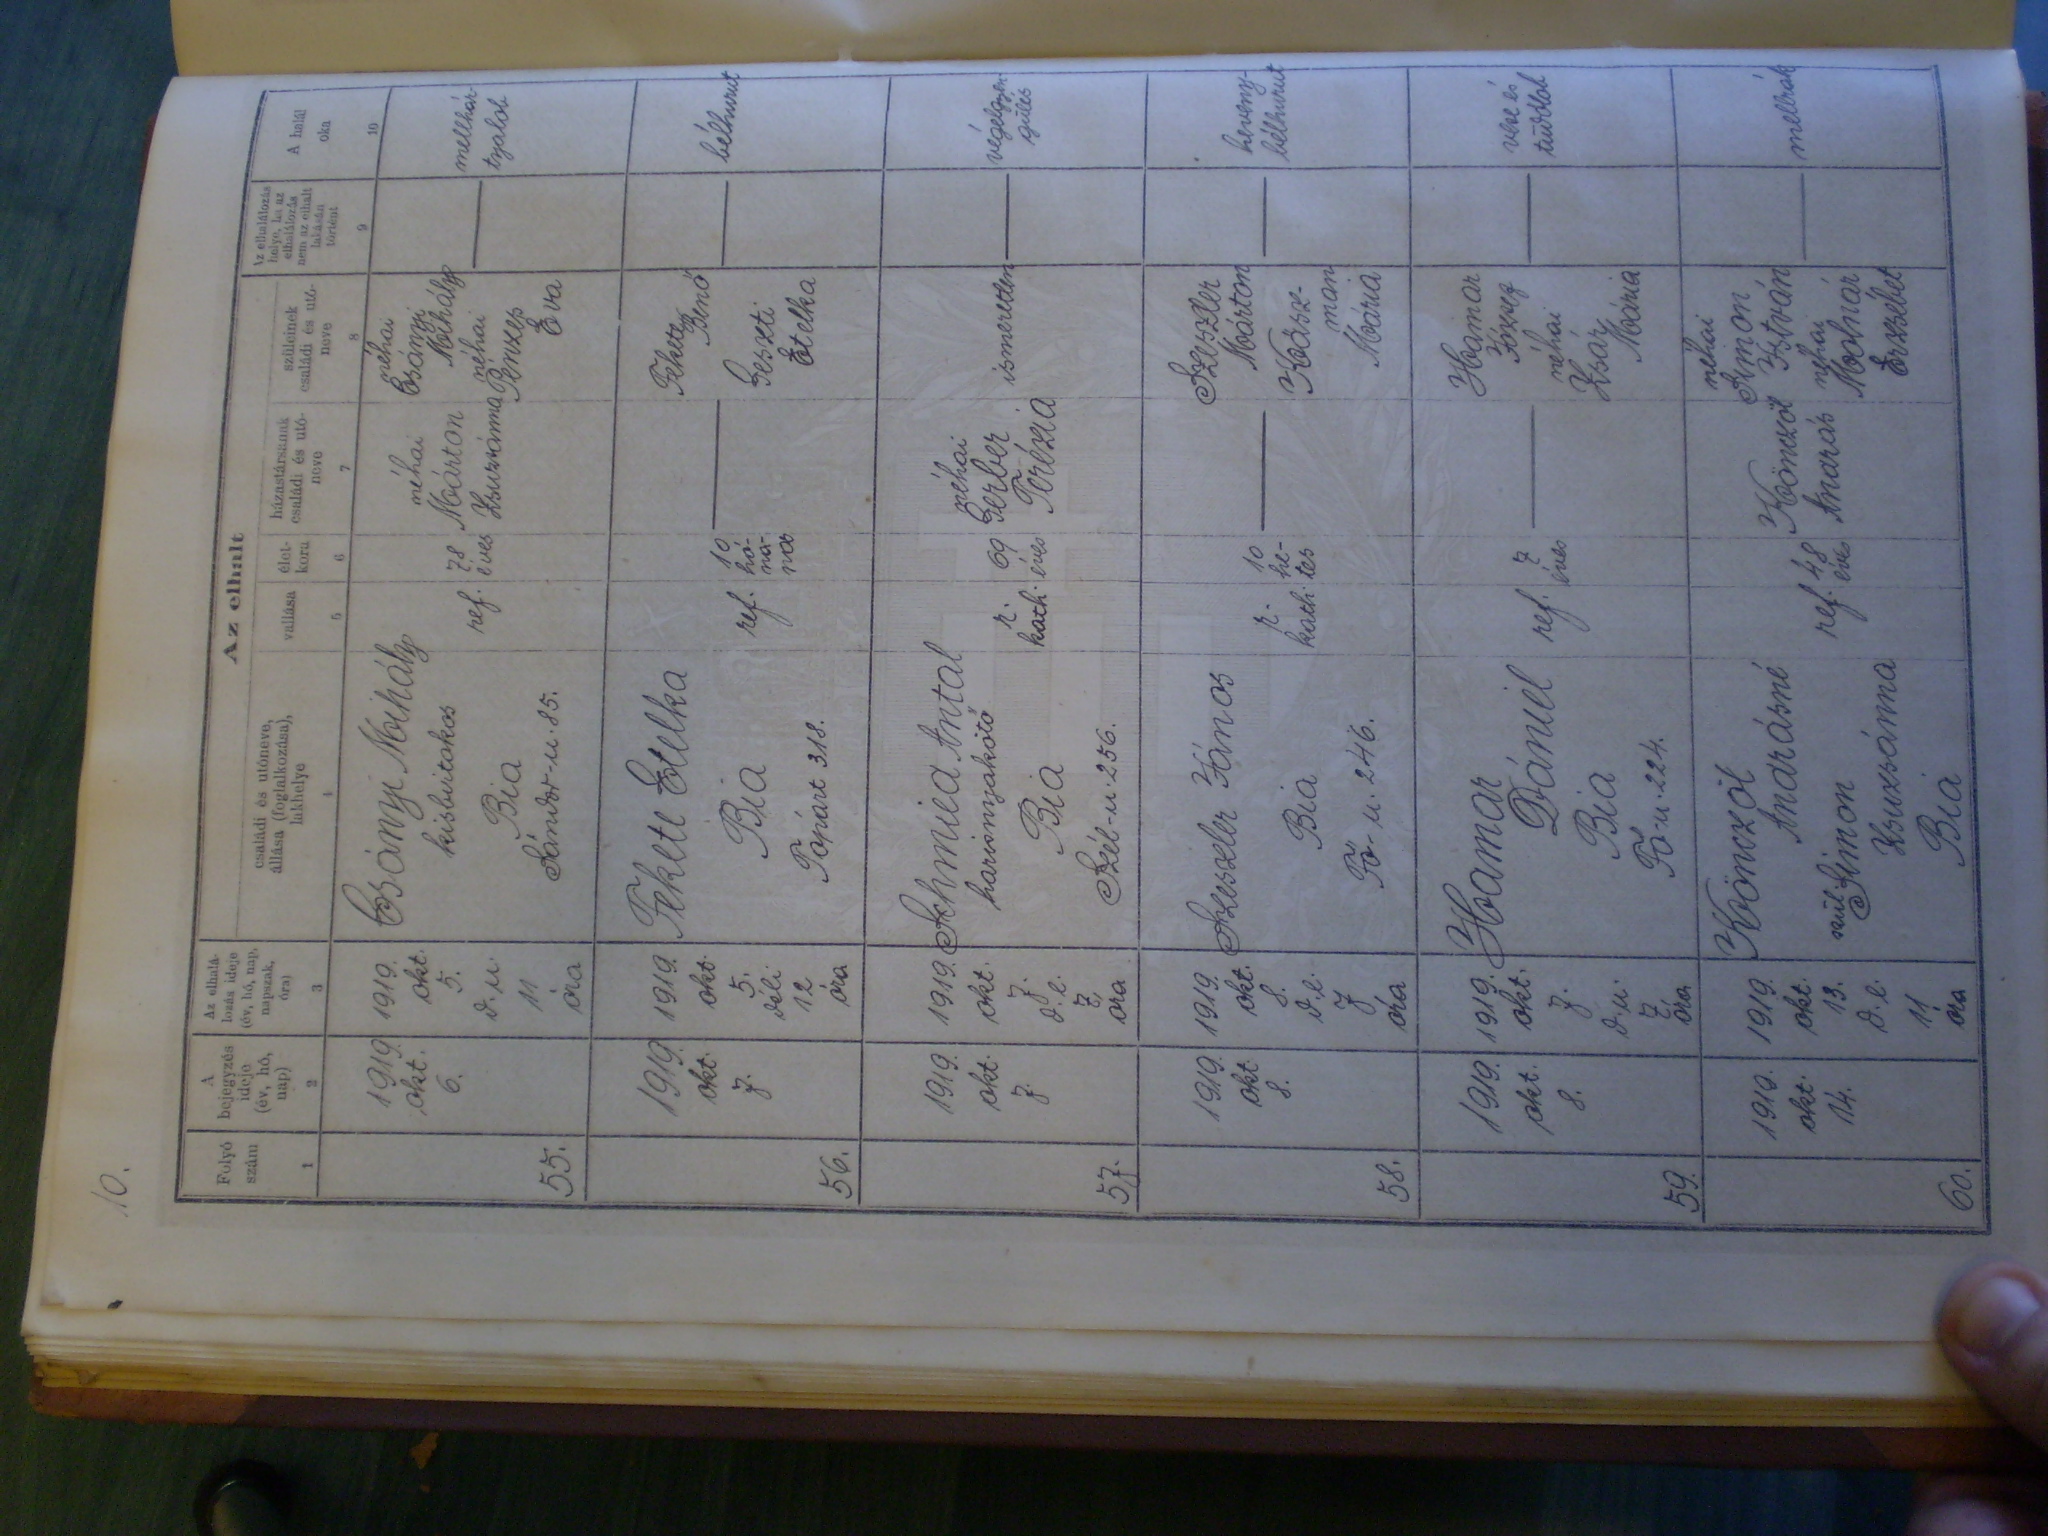 10.
Az elhalt
Folyó
szám
1
A
bejegyzés
ideje
(év, hó,
nap)
2
Az elhalá-
lozás ideje
(év, hó, nap,
napszak,
óra)
3
családi és utóneve,
állása (foglalkozása),
lakhelye
4
vallása
5
élet-
kora
6
házastársának
családi és utó-
neve
7
szüleinek
családi és utó-
neve
8
Az elhalálozás
helye, ha az
elhalálozás
nem az elhalt
lakásán
történt
9
A halál
oka
10
55.
1919.
okt.
6.
1919.
okt.
5.
d. u.
11
óra
Csányi Mihály
kisbirtokos
Bia
Sándor-u. 85.
ref.
78
éves
néhai
Márton
Zsuzsánna
néhai
Csányi
Mihály
néhai
Pénzes
Éva
mellhár-
tyalob
56.
1919.
okt.
7.
1919.
okt.
5.
déli
12
óra
Fekete Etelka
Bia
Tópart 318.
ref.
10
hó-
na-
pos
Fekete
Benő
Geszti
Etelka
bélhurut
57.
1919.
okt.
7.
1919.
okt.
7.
d. e.
7
óra
Schmied Antal
harisnyakötő
Bia
Szél-u. 256.
r.
kath.
69
éves
néhai
Gerber
Terézia
ismeretlen
végelgyen-
gülés
58.
1919.
okt.
8.
1919.
okt.
8.
d. e.
7
óra
Szeszler János
Bia
Fő-u. 246.
r.
kath.
10
he-
tes
Szeszler
Márton
Kósz-
man
Mária
heveny-
bélhurut
59.
1919.
okt.
8.
1919.
okt.
7.
d. u.
7
óra
Hamar
Dániel
Bia
Fő-u. 224.
ref.
7
éves
Hamar
József
néhai
Zsáry
Mária
vese és
tüdőlob
60.
1919.
okt.
14.
1919.
okt.
13.
d. e.
11
óra
Könczöl
Andrásné
szül. Simon
Zsuzsánna
Bia
ref.
48
éves
Könczöl
András
néhai
Simon
István
néhai
Molnár
Erzsébet
mellrák